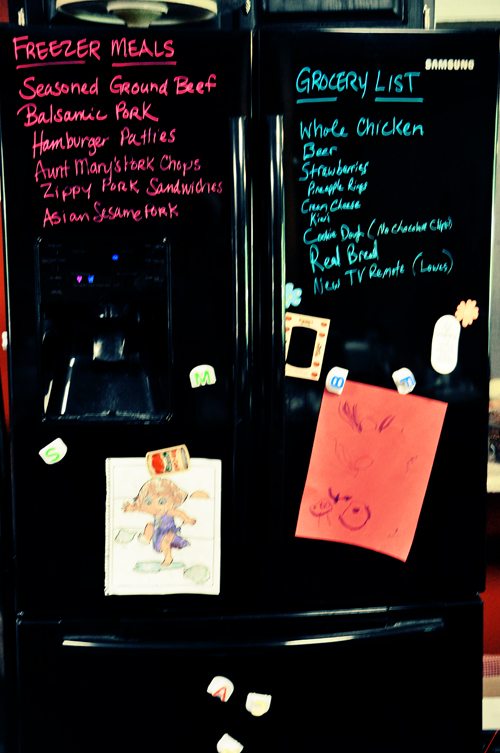 FREEZER MEALS
Seasoned Ground Beef
Balsamic Pork
Hamburger Patties
Aunt Mary's Pork Chops
Zippy Pork Sandwiches
Asian Sesame Pork
SAMSUNG
GROCERY LIST
Whole Chicken
Beer
Strawberries
Pineapple Rings
Cream Cheese
Kiwi
Cookie Dough (No Chocolate Chips!)
Real Bread
New TV Remote (Lowes)
M
S
8
A